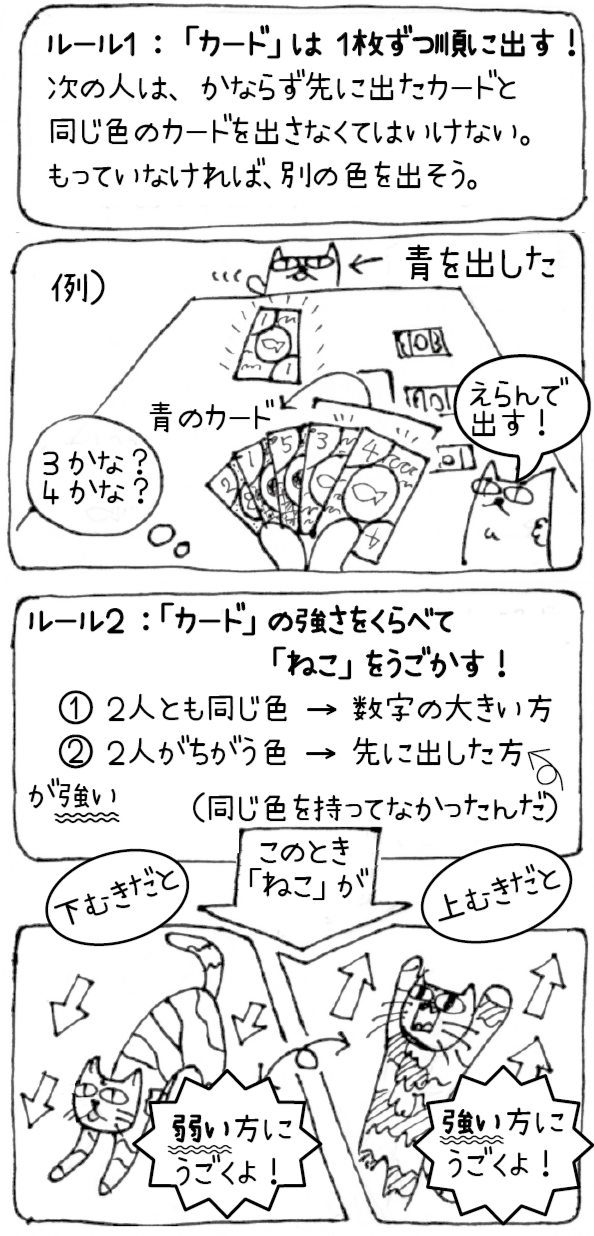 ルール1：「カード」は 1枚ずつ順に出す！
次の人は、かならず先に出たカードと
同じ色のカードを出さなくてはいけない。
もっていなければ、別の色を出そう。
例）
青を出した
青のカード
えらんで
出す！
3かな？
4かな？
2
1
5
3
4
4
ルール2：「カード」の強さをくらべて
「ねこ」をうごかす！
① 2人とも同じ色 → 数字の大きい方
② 2人がちがう色 → 先に出した方
が強い
（同じ色を持ってなかったんだ）
このとき
「ねこ」が
下むきだと
上むきだと
弱い方に
うごくよ！
強い方に
うごくよ！